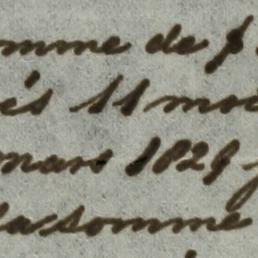 omme de p
és 11 moi
mars 1829
la somme